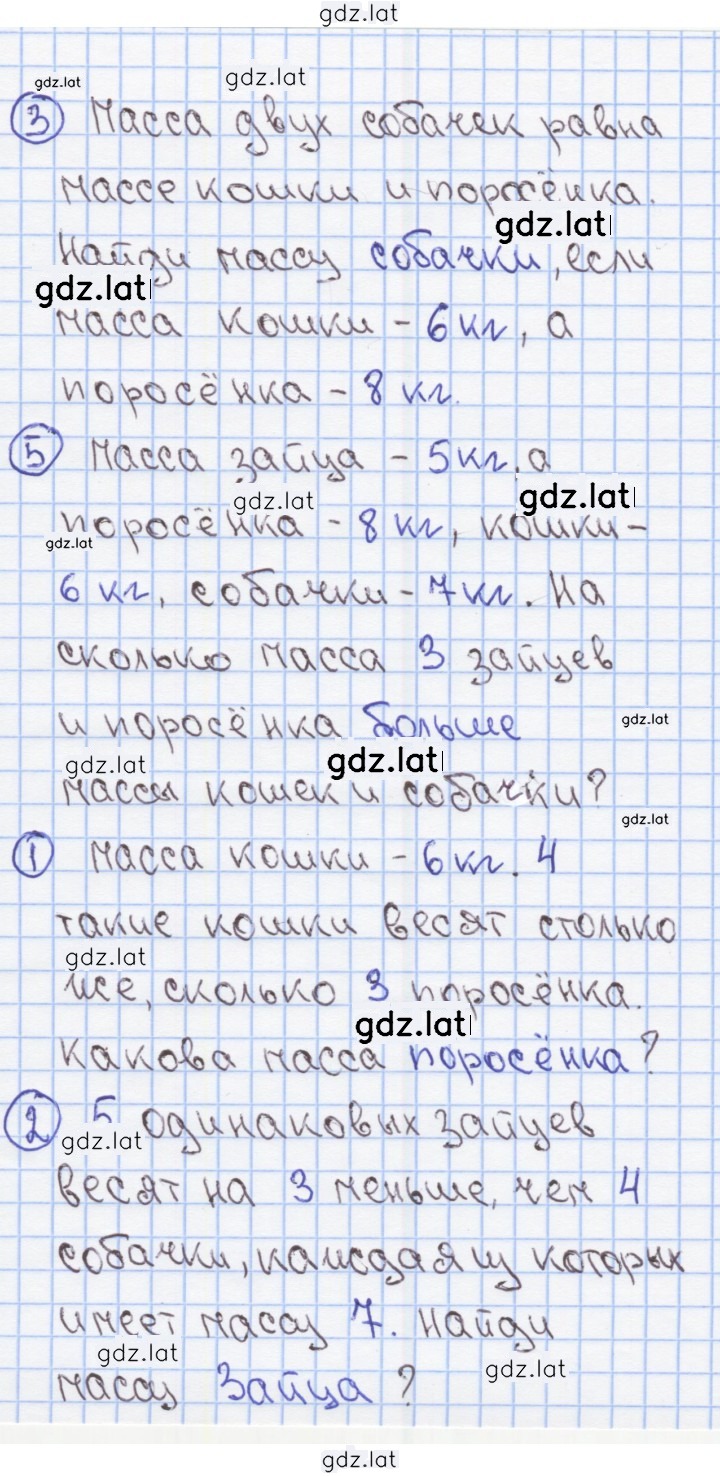 gdz.lat
gdz.lat gdz.lat
3 Масса двух собачек равна
массе кошки и поросёнка.
gdz.lat
Найди массу собачки, если
gdz.lat
масса кошки - 6 кг, а
поросёнка - 8 кг.
5 Масса зайца - 5 кг, а
gdz.lat gdz.lat
поросёнка - 8 кг, кошки -
gdz.lat
6 кг, собачки - 7 кг. На
сколько масса 3 зайцев
и поросёнка больше
gdz.lat
gdz.lat gdz.lat
массы кошек и собачки?
gdz.lat
1 Масса кошки - 6 кг. 4
такие кошки весят столько
gdz.lat
же, сколько 3 поросёнка.
gdz.lat
Какова масса поросёнка?
2 5 одинаковых зайцев
gdz.lat
весят на 3 меньше, чем 4
собачки, каждая из которых
имеет массу 7. Найди
gdz.lat gdz.lat
массу Зайца?
gdz.lat